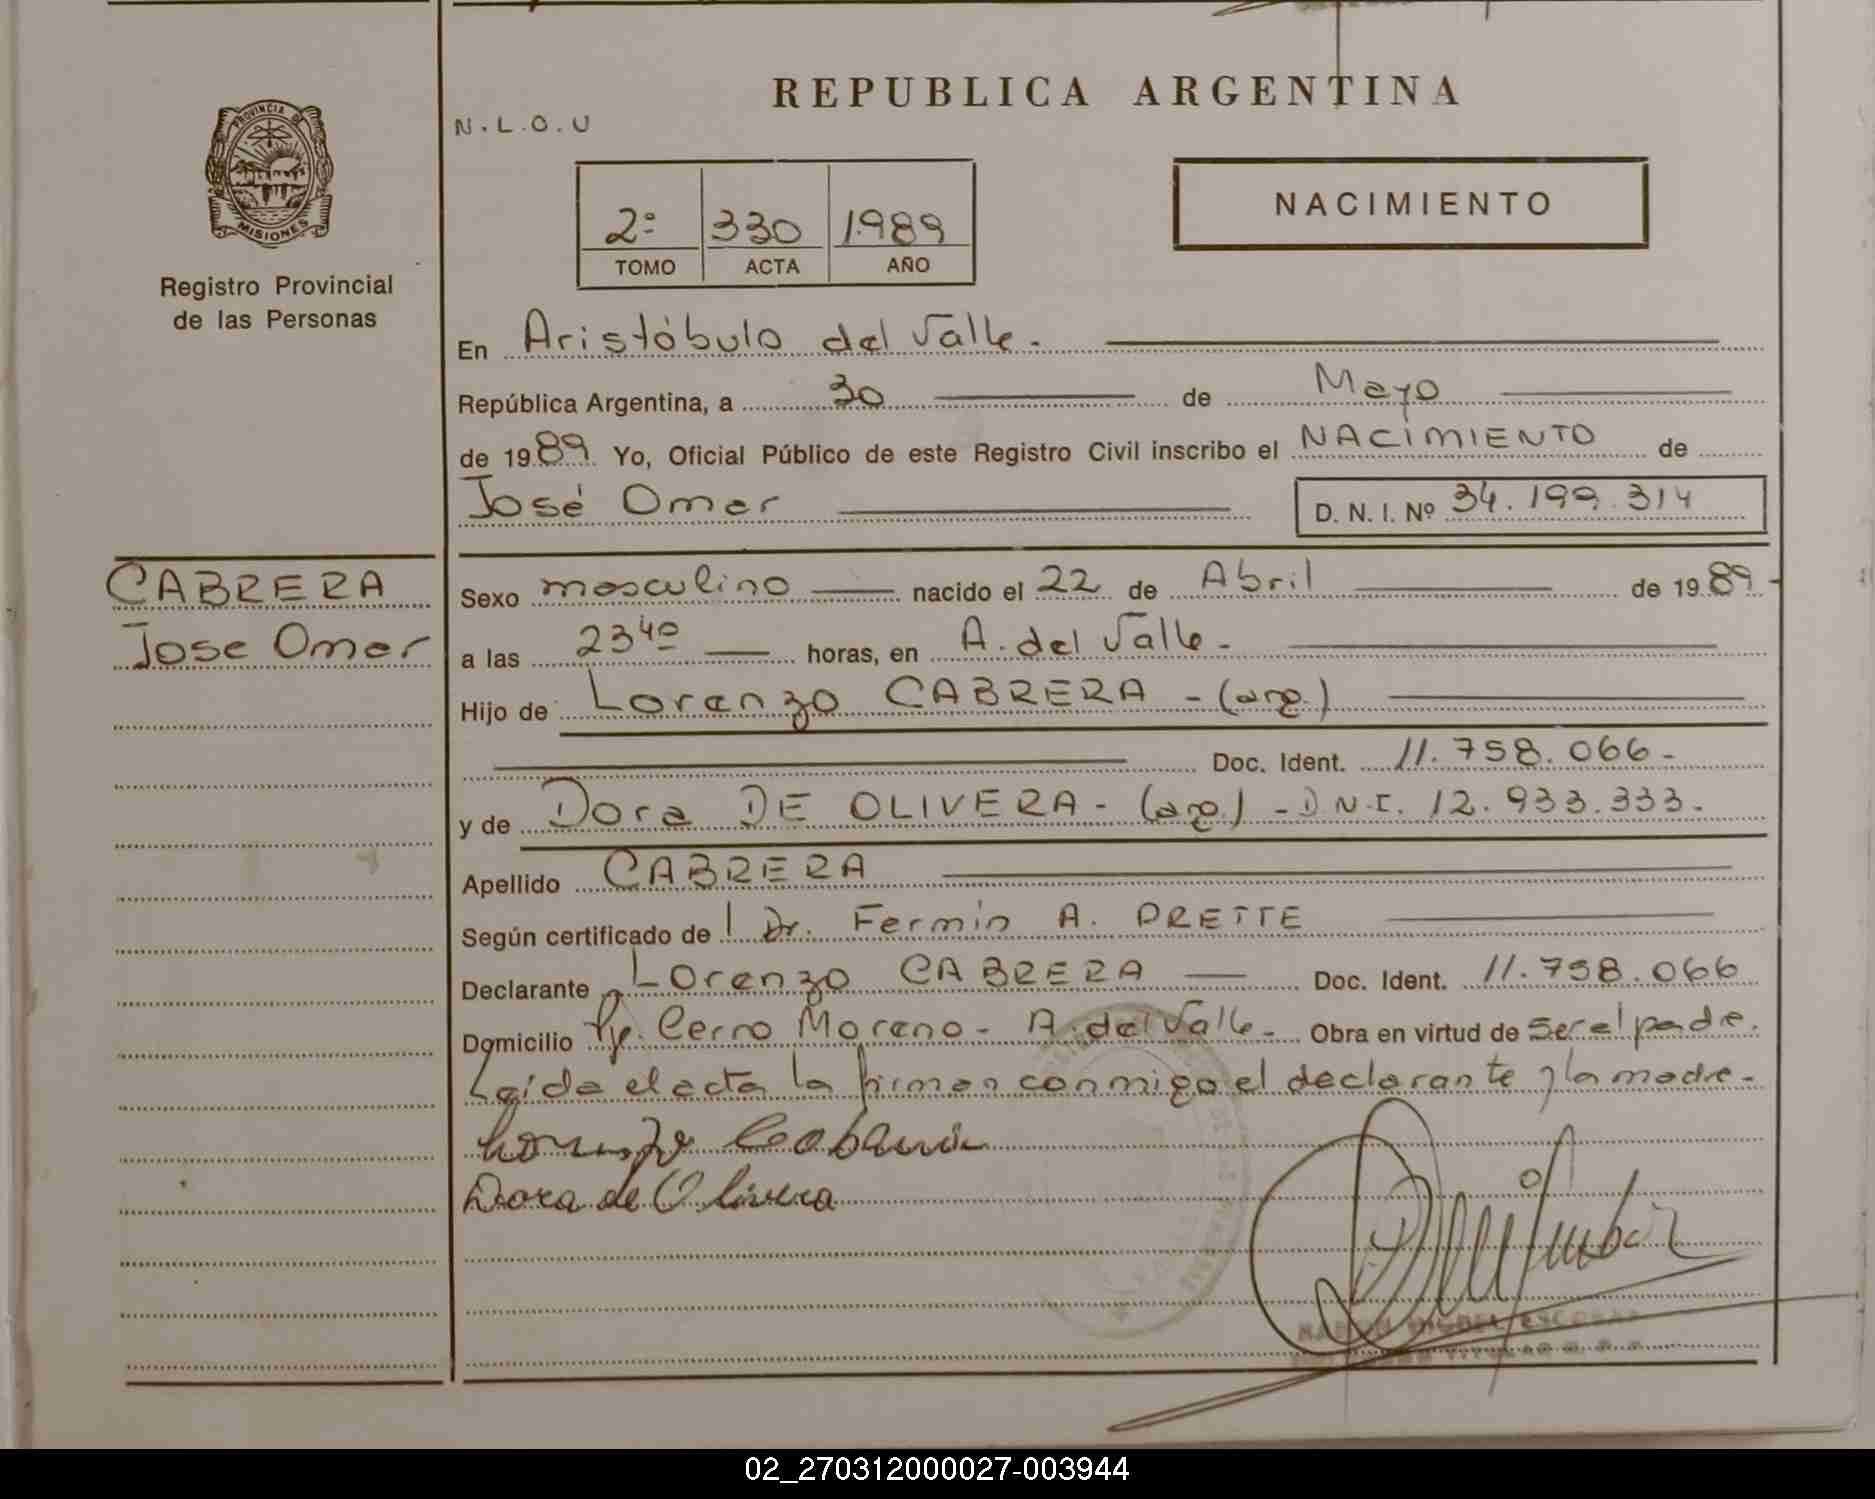 REPUBLICA ARGENTINA
N.L.O.U
PROVINCIA DE
MISIONES
Registro Provincial
de las Personas
2º 330 1989
TOMO ACTA AÑO
NACIMIENTO
En Aristóbulo del Valle.
República Argentina, a 30 de Mayo
de 1989 Yo, Oficial Público de este Registro Civil inscribo el NACIMIENTO de
José Omar
D. N. I. Nº 34.199.314
CABRERA
Jose Omar
Sexo masculino nacido el 22 de Abril de 1989
a las 23⁴⁰ horas, en A. del Valle.
Hijo de Lorenzo CABRERA - (arg.)
Doc. Ident. 11.758.066-
y de Dora DE OLIVERA - (arg.) - D.N.I. 12.933.333.
Apellido CABRERA
Según certificado de Dr. Fermin A. PRETTE
Declarante Lorenzo CABRERA Doc. Ident. 11.758.066
Domicilio Pje. Cerro Moreno - A. del Valle - Obra en virtud de ser el padre.
Leída el acta la firman conmigo el declarante y la madre-
Dora de Olivera
MIGUEL ESCOBAR
TITULAR
02_270312000027-003944